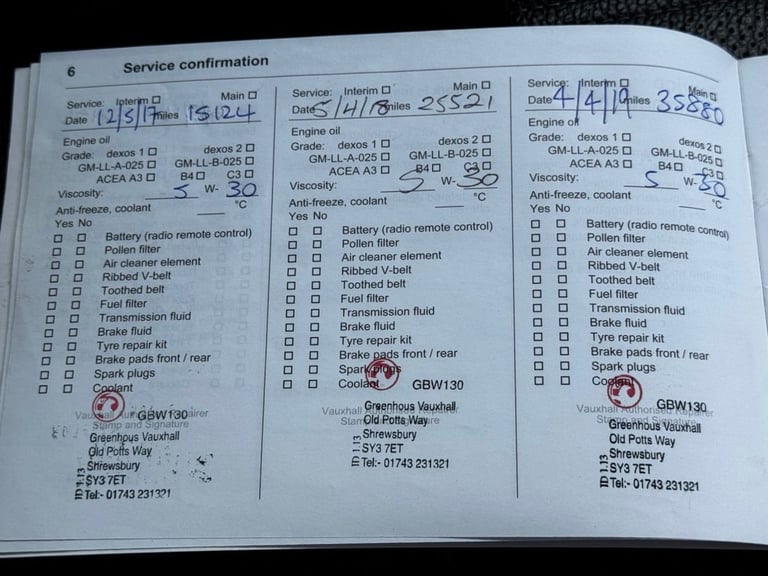 6 Service confirmation
Service: Interim Main
Date 12/5/17 miles 15124
Engine oil
Grade: dexos 1 dexos 2
GM-LL-A-025 GM-LL-B-025
ACEA A3 B4 C3
Viscosity: 5 W- 30
Anti-freeze, coolant °C
Yes No
Battery (radio remote control)
Pollen filter
Air cleaner element
Ribbed V-belt
Toothed belt
Fuel filter
Transmission fluid
Brake fluid
Tyre repair kit
Brake pads front / rear
Spark plugs
Coolant
GBW130
Vauxhall Authorised Repairer
Stamp and Signature
Greenhous Vauxhall
Old Potts Way
Shrewsbury
SY3 7ET
Tel:- 01743 231321
ID 1.13
Service: Interim Main
Date 5/4/18 miles 25521
Engine oil
Grade: dexos 1 dexos 2
GM-LL-A-025 GM-LL-B-025
ACEA A3 B4 C3
Viscosity: 5 W- 30
Anti-freeze, coolant °C
Yes No
Battery (radio remote control)
Pollen filter
Air cleaner element
Ribbed V-belt
Toothed belt
Fuel filter
Transmission fluid
Brake fluid
Tyre repair kit
Brake pads front / rear
Spark plugs
Coolant
GBW130
Vauxhall Authorised Repairer
Stamp and Signature
Greenhous Vauxhall
Old Potts Way
Shrewsbury
SY3 7ET
Tel:- 01743 231321
ID 1.13
Service: Interim Main
Date 4/4/19 miles 35880
Engine oil
Grade: dexos 1 dexos 2
GM-LL-A-025 GM-LL-B-025
ACEA A3 B4 C3
Viscosity: 5 W- 30
Anti-freeze, coolant °C
Yes No
Battery (radio remote control)
Pollen filter
Air cleaner element
Ribbed V-belt
Toothed belt
Fuel filter
Transmission fluid
Brake fluid
Tyre repair kit
Brake pads front / rear
Spark plugs
Coolant
GBW130
Vauxhall Authorised Repairer
Stamp and Signature
Greenhous Vauxhall
Old Potts Way
Shrewsbury
SY3 7ET
Tel:- 01743 231321
ID 1.13